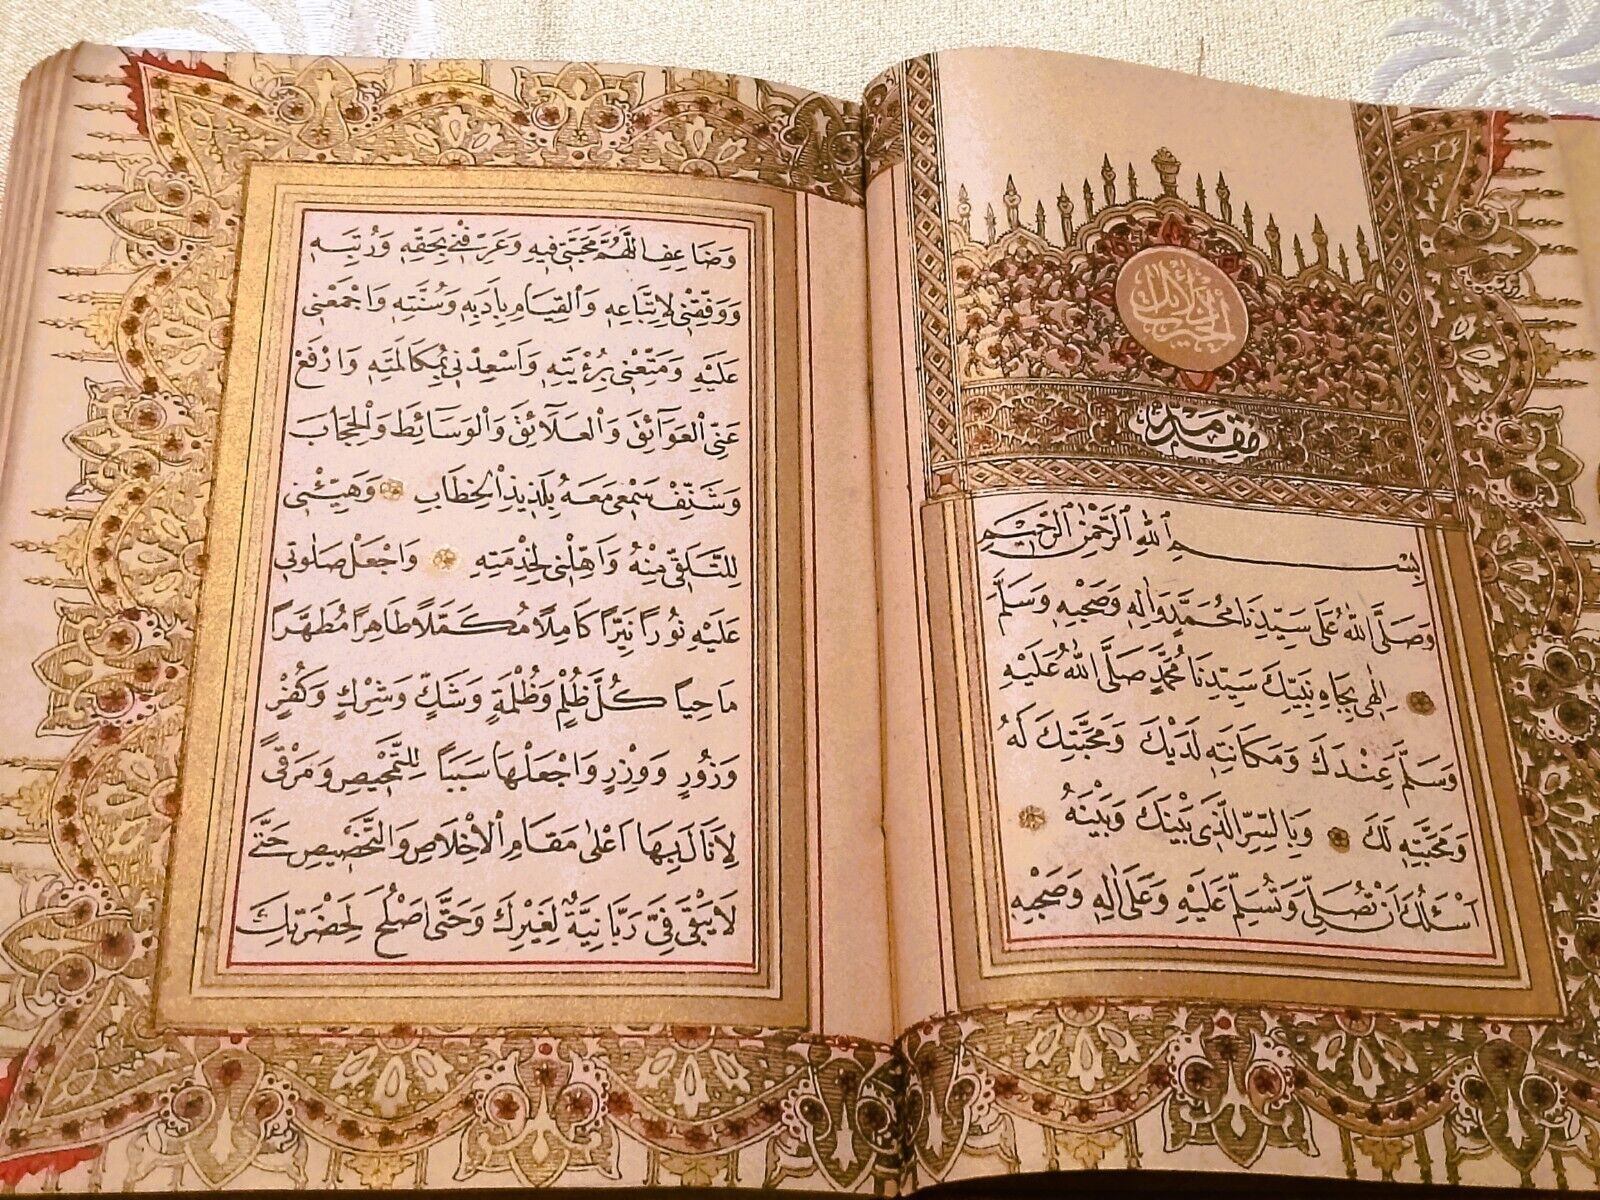 دلائل الخيرات
مقدمه
بِسْمِ ٱللّٰهِ ٱلرَّحْمٰنِ ٱلرَّحِيْمِ
وَصَلَّى اللّٰهُ عَلٰى سَيِّدِنَا مُحَمَّدٍ وَاٰلِهِ وَصَحْبِهِ وَسَلَّمَ
اِلٰهِى بِجَاهِ نَبِيِّكَ سَيِّدِنَا مُحَمَّدٍ صَلَّى اللّٰهُ عَلَيْهِ
وَسَلَّمَ عِنْدَكَ وَمَكَانَتِهِ لَدَيْكَ وَمَحَبَّتِكَ لَهُ
وَمَحَبَّتِهِ لَكَ وَبِالسِّرِّ الَّذِى بَيْنَكَ وَبَيْنَهُ
اَسْئَلُكَ اَنْ تُصَلِّىَ وَتُسَلِّمَ عَلَيْهِ وَعَلٰى اٰلِهِ وَصَحْبِهِ
وَضَاعِفِ اللّٰهُمَّ مَحَبَّتِى فِيهِ وَعَرِّفْنِى بِحَقِّهِ وَرُتَبِهِ
وَوَفِّقْنِى لِاِتِّبَاعِهِ وَالْقِيَامِ بِاَدَبِهِ وَسُنَّتِهِ وَاجْمَعْنِى
عَلَيْهِ وَمَتِّعْنِى بِرُؤْيَتِهِ وَاَسْعِدْنِى بِمُكَالَمَتِهِ وَارْفَعْ
عَنِّى الْعَوَآئِقَ وَالْعَلَآئِقَ وَالْوَسَائِطَ وَالْحِجَابَ
وَشَنِّفْ سَمْعِى مَعَهُ بِلَذِيذِ الْخِطَابِ وَهَيِّئْنِى
لِلتَّلَقِّى مِنْهُ وَاَهِّلْنِى لِخِدْمَتِهِ وَاجْعَلْ صَلٰوتِى
عَلَيْهِ نُورًا نَيِّرًا كَامِلًا مُكَمَّلًا طَاهِرًا مُطَهَّرًا
مَاحِيًا كُلَّ ظُلْمٍ وَظُلْمَةٍ وَشَكٍّ وَشِرْكٍ وَكُفْرٍ
وَزُورٍ وَوِزْرٍ وَاجْعَلْهَا سَبَبًا لِلتَّمْحِيصِ وَمَرْقًى
لِاَنَالَ بِهَا اَعْلٰى مَقَامِ الْاِخْلَاصِ وَالتَّخْصِيصِ حَتّٰى
لَا يَبْقٰى فِىَّ رَبَّانِيَّةٌ لِغَيْرِكَ وَحَتّٰى اَصْلُحَ لِحَضْرَتِكَ